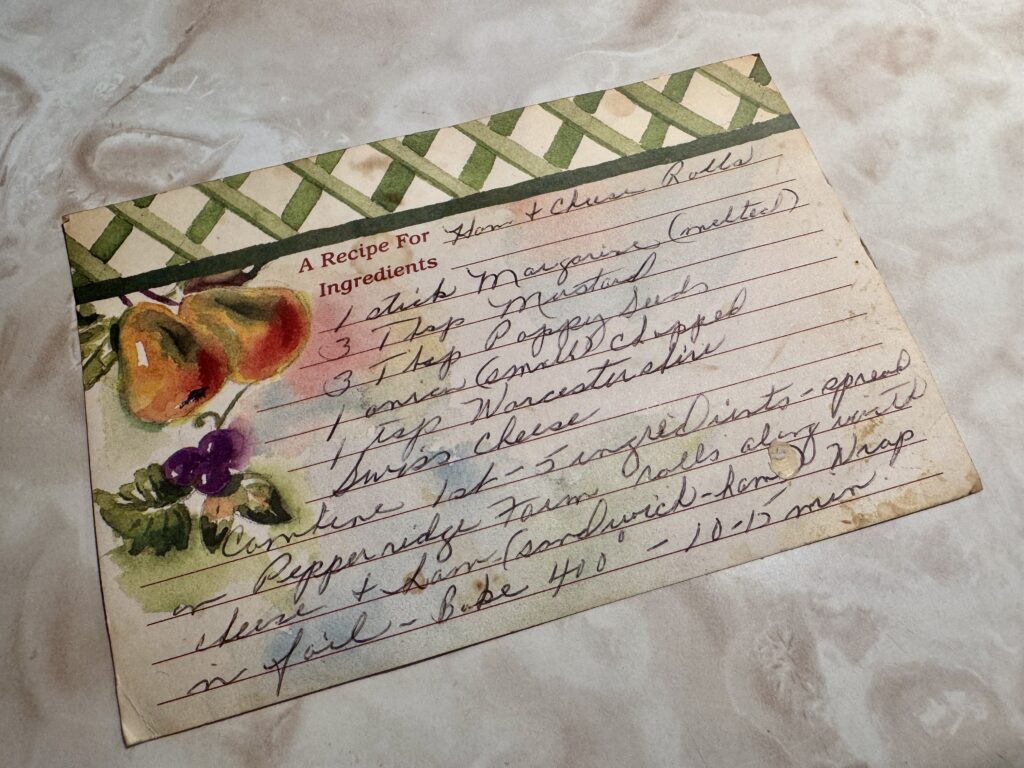 A Recipe For Ham + Cheese Rolls
Ingredients
1 stick Margarine (melted)
3 Tbsp Mustard
3 Tbsp Poppy Seeds
1 onion (small) chopped
1 tsp Worcestershire
Swiss Cheese
Combine 1st - 5 ingredients - spread
on Pepperridge Farm rolls along with
cheese + ham (sandwich - ham) Wrap
in foil - Bake 400° - 10-15 min.